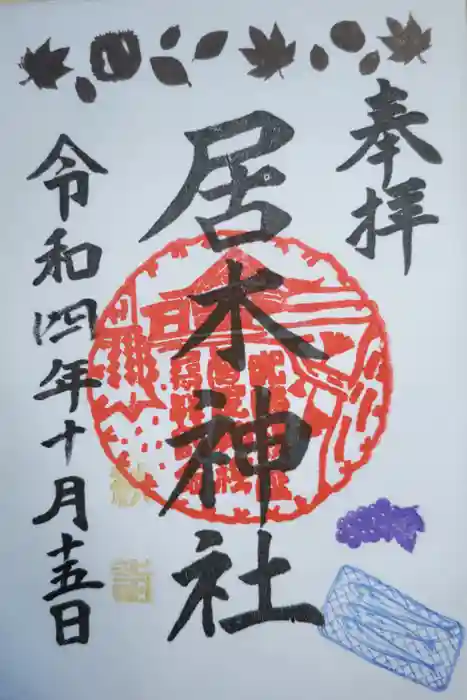 奉拝
居木神社
令和四年十月十五日